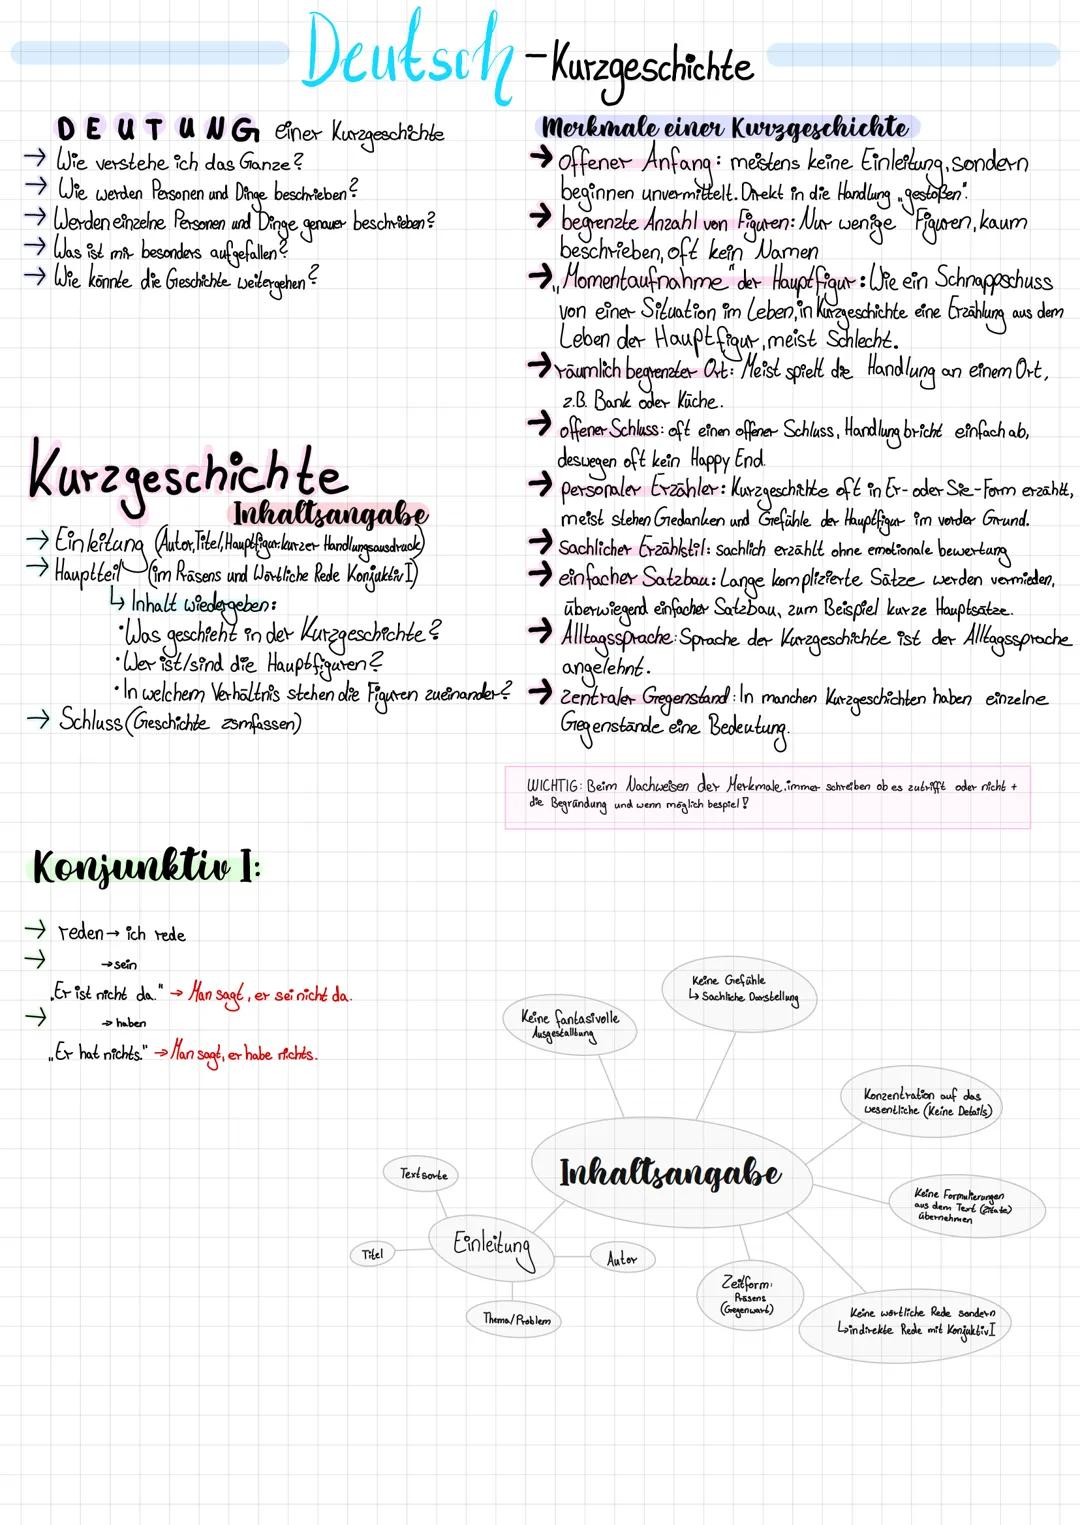 Deutsch - Kurzgeschichte
DEUTUNG einer Kurzgeschichte
→ Wie verstehe ich das Ganze?
→ Wie werden Personen und Dinge beschrieben?
→ Werden einzelne Personen und Dinge genauer beschrieben?
→ Was ist mir besonders aufgefallen?
→ Wie könnte die Geschichte weitergehen?
Kurzgeschichte
Inhaltsangabe
→ Einleitung (Autor, Titel, Hauptfigur. kurzer Handlungsausdruck)
→ Hauptteil (im Präsens und Wörtliche Rede Konjuktiv I)
↳ Inhalt wiedergeben:
• Was geschieht in der Kurzgeschichte?
• Wer ist/sind die Hauptfiguren?
• In welchem Verhältnis stehen die Figuren zueinander?
→ Schluss (Geschichte zsmfassen)
Merkmale einer Kurzgeschichte
→ offener Anfang: meistens keine Einleitung, sondern
beginnen unvermittelt. Direkt in die Handlung „gestoßen".
→ begrenzte Anzahl von Figuren: Nur wenige Figuren, kaum
beschrieben, oft kein Namen
→ „Momentaufnahme" der Hauptfigur: Wie ein Schnappschuss
von einer Situation im Leben, in Kurzgeschichte eine Erzählung aus dem
Leben der Hauptfigur, meist Schlecht.
→ räumlich begrenzter Ort: Meist spielt die Handlung an einem Ort,
z.B. Bank oder Küche.
→ offener Schluss: oft einen offener Schluss, Handlung bricht einfach ab,
deswegen oft kein Happy End.
→ personaler Erzähler: Kurzgeschichte oft in Er- oder Sie-Form erzählt,
meist stehen Gedanken und Gefühle der Hauptfigur im vorder Grund.
→ Sachlicher Erzählstil: sachlich erzählt ohne emotionale bewertung
→ einfacher Satzbau: Lange komplizierte Sätze werden vermieden,
überwiegend einfacher Satzbau, zum Beispiel kurze Hauptsätze.
→ Alltagssprache: Sprache der Kurzgeschichte ist der Alltagssprache
angelehnt.
→ zentraler Gegenstand: In manchen Kurzgeschichten haben einzelne
Gegenstände eine Bedeutung.
WICHTIG: Beim Nachweisen der Merkmale, immer schreiben ob es zutrifft oder nicht +
die Begründung und wenn möglich bespiel!
Konjunktiv I:
→ reden → ich rede
→ → sein
„Er ist nicht da." → Man sagt, er sei nicht da.
→ → haben
„Er hat nichts." → Man sagt, er habe nichts.
Keine Gefühle
↳ Sachliche Darstellung
Keine fantasivolle
Ausgestalltung
Konzentration auf das
wesentliche (Keine Details)
Inhaltsangabe
Textsorte
Keine Formulierungen
aus dem Text (Zitate)
übernehmen
Einleitung
Titel
Autor
Thema/Problem
Zeitform:
Präsens
(Gegenwart)
Keine wörtliche Rede sondern
↳ indirekte Rede mit Konjuktiv I